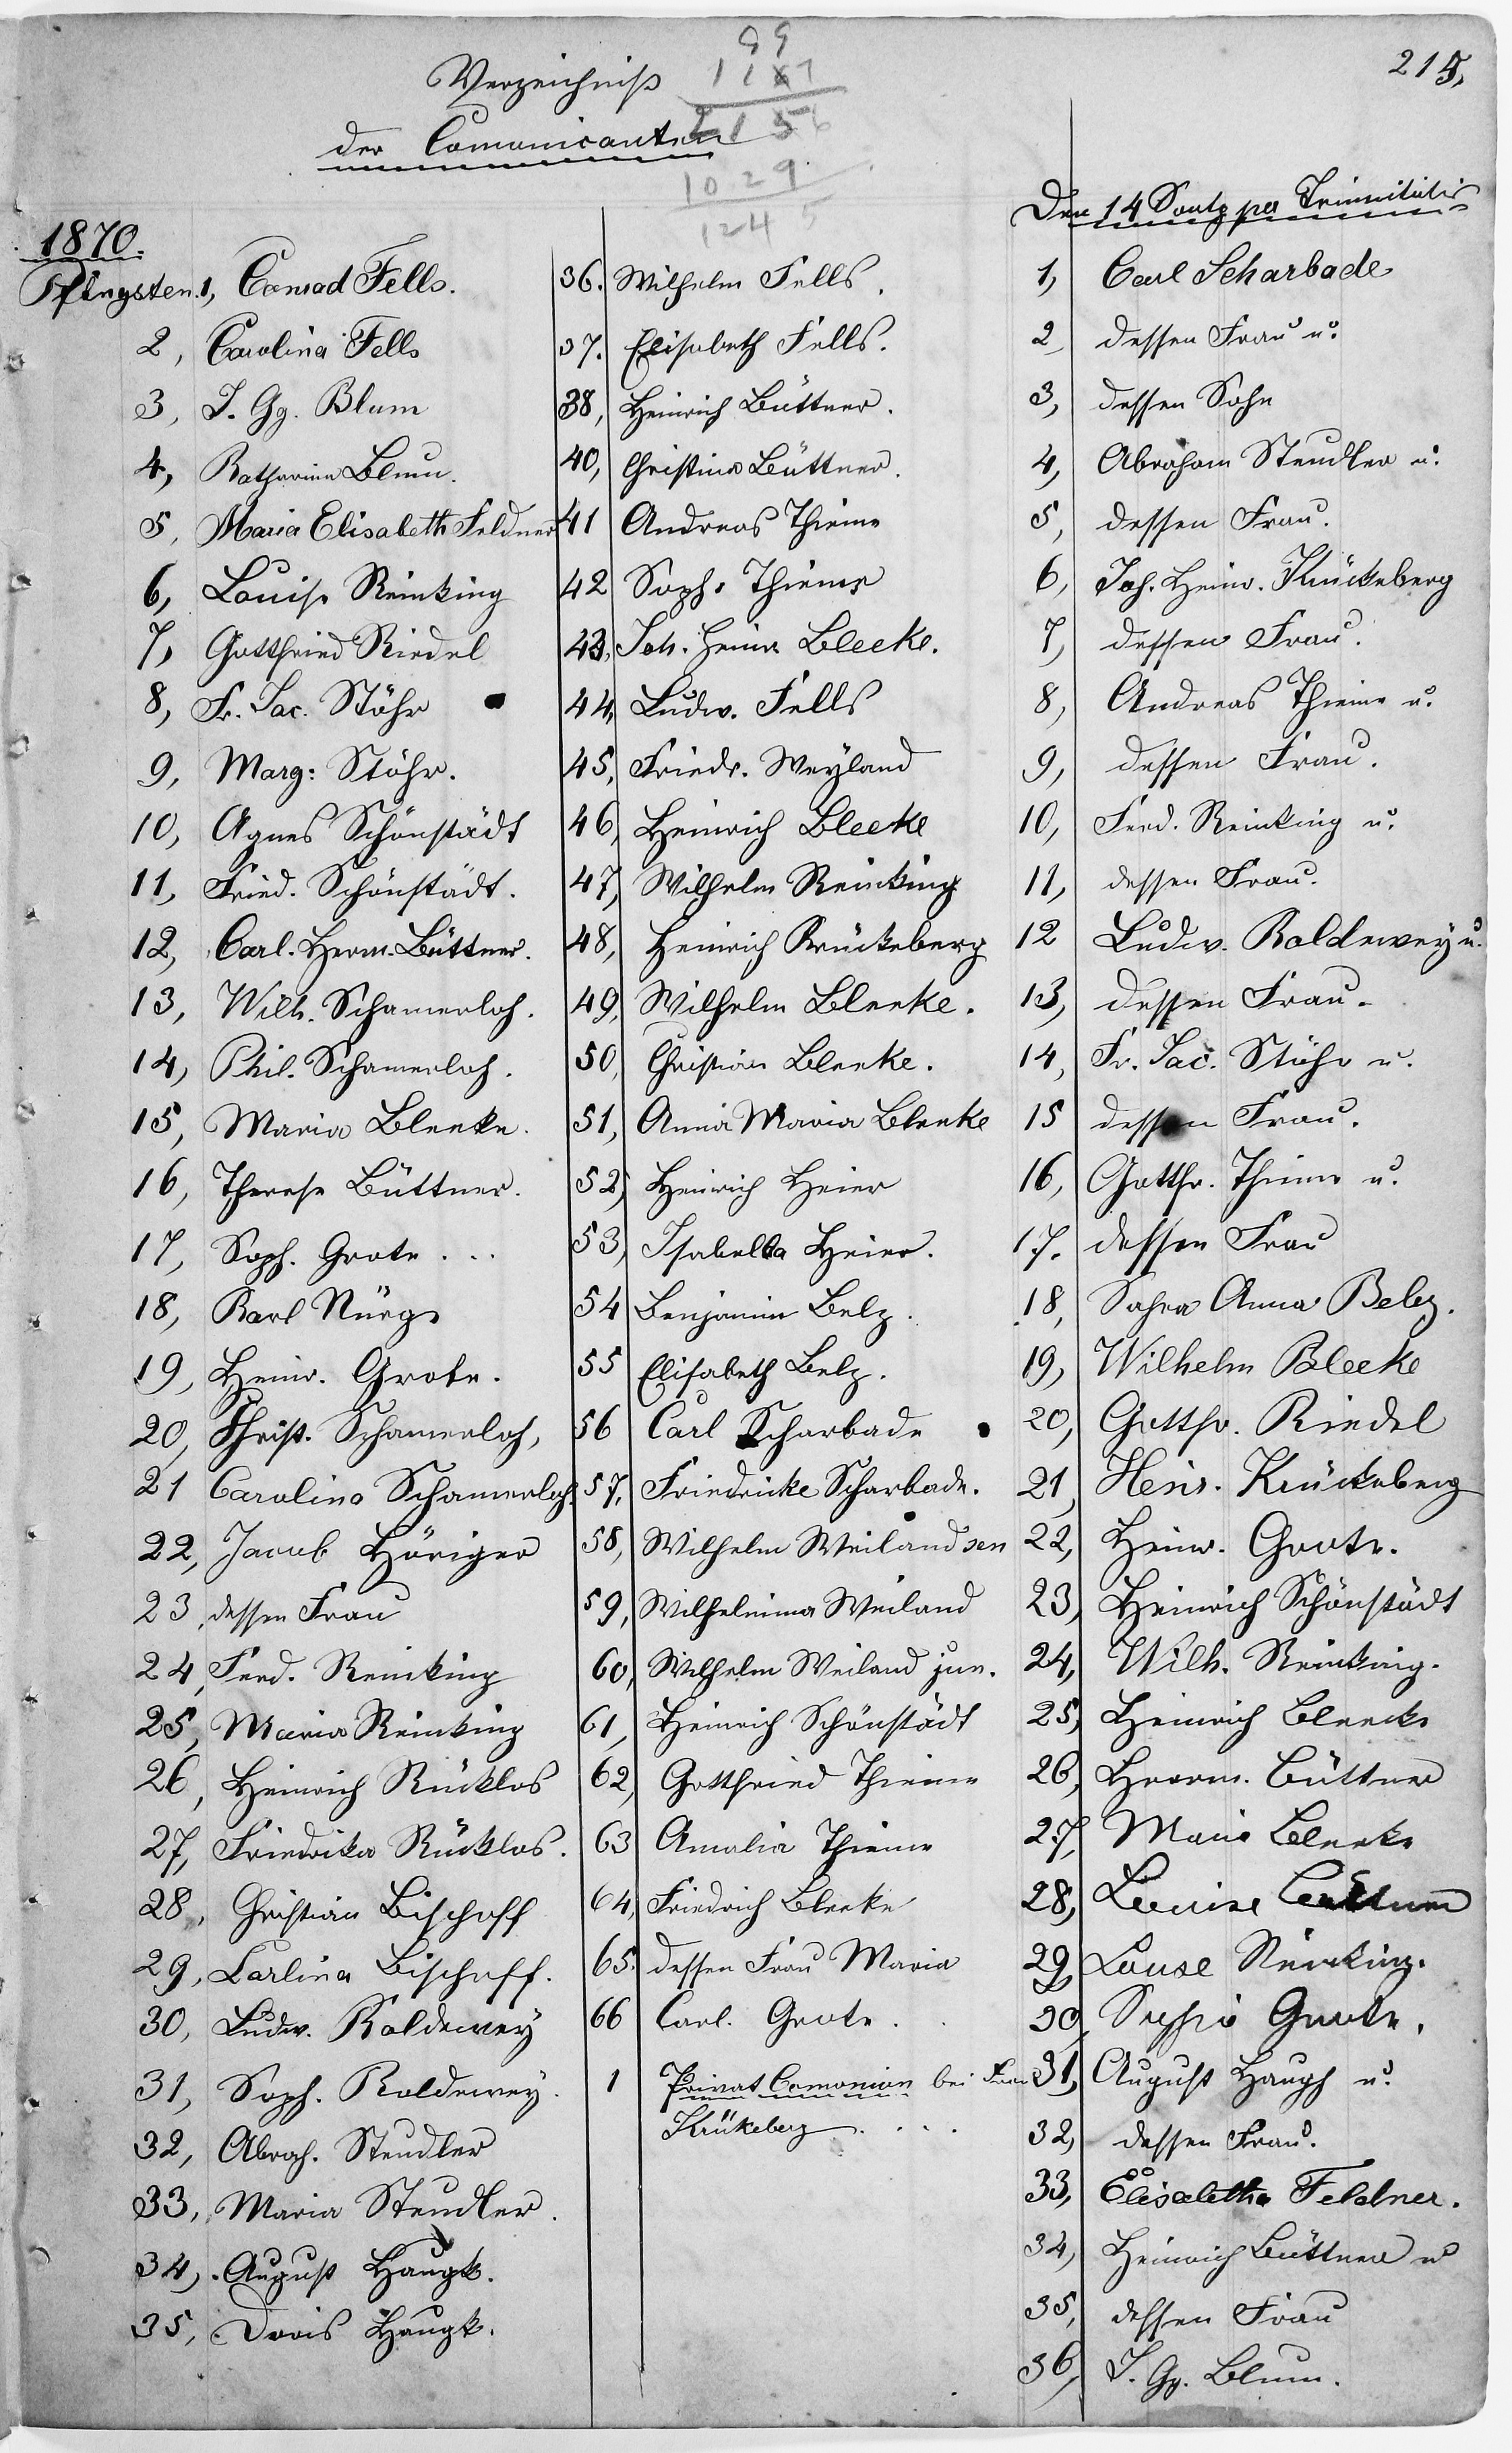 215.
99
1157
2156
10 29
1245
Verzeichniß
der Comunicanten
1870.
Pfingsten. 1, Conrad Fells.
2, Carolina Fells
3, J. Gg. Blum
4, Katharina Blum.
5, Maria Elisabeth Feldner
6, Louise Reinking
7, Gottfried Riedel
8, Fr. Jac. Stöhr
9, Marg: Stöhr.
10, Agnes Schönstädt
11, Fried. Schönstädt.
12, Carl. Herm. Büttner.
13, Wilh. Schamerloh.
14, Phil. Schamerloh.
15, Maria Bleeke.
16, Therese Büttner.
17, Soph. Grote...
18, Karl Nürge
19, Heinr. Grote.
20, Christ. Schamerloh,
21 Carolina Schamerloh.
22, Jacob Höriger
23, dessen Frau
24, Ferd. Reinking
25, Maria Reinking
26, Heinrich Rücklos
27, Friedrika Rücklos.
28, Christian Bischoff
29, Carlina Bischoff.
30, Ludw. Koldewey
31, Soph. Koldewey.
32, Abrah. Steudler
33, Maria Steudler.
34, August Haugk.
35, Doris Haugk.
36. Wilhelm Fells.
37. Elisabeth Fells.
38, Heinrich Büttner.
40, Christina Büttner.
41 Andreas Thieme
42 Soph. Thieme
43, Joh. Heinr. Bleeke.
44, Ludw. Fells
45, Friedr. Weyland
46, Heinrich Bleeke
47, Wilhelm Reinking
48, Heinrich Krückeberg
49, Wilhelm Bleeke.
50, Christian Bleeke.
51, Anna Maria Bleeke
52, Heinrich Heier
53, Isabella Heier.
54 Benjamin Belz.
55 Elisabeth Belz.
56 Carl Scharbade
57, Friedricke Scharbade.
58, Wilhelm Weiland sen
59, Wilhelmina Weiland
60, Wilhelm Weiland jun.
61, Heinrich Schönstädt
62, Gottfried Thieme
63 Amalia Thieme
64, Friedrich Bleeke
65. dessen Frau Maria
66 Carl. Grote..
1 Privat Comonion bei Frau
Krükeberg....
Den 14 Sontg per Trinnitatis
1, Carl Scharbade
2, dessen Frau u.
3, dessen Sohn
4, Abraham Steudler u.
5, dessen Frau.
6, Joh. Heinr. Krückeberg
7, dessen Frau.
8, Andreas Thieme u.
9, dessen Frau.
10, Ferd. Reinking u.
11, dessen Frau.
12 Ludw. Koldewey u.
13, dessen Frau.
14, Fr. Jac. Stöhr u.
15 dessen Frau.
16, Gottfr. Thieme u.
17. dessen Frau
18, Sahra Anna Belz.
19, Wilhelm Bleeke
20, Gottfr. Riedel
21, Heinr. Krückeberg
22, Heinr. Grote.
23, Heinrich Schönstädt
24, Wilh. Reinking.
25, Heinrich Bleecke
26, Herrm. Büttner
27, Maria Bleeke
28, Louise
29, Louse Reinking.
30, Sophia Grote.
31, August Haugh u.
32, dessen Frau.
33, Elisaletha Feldner.
34, Heinrich Büttner u
35, dessen Frau
36, J. Gg. Blum.